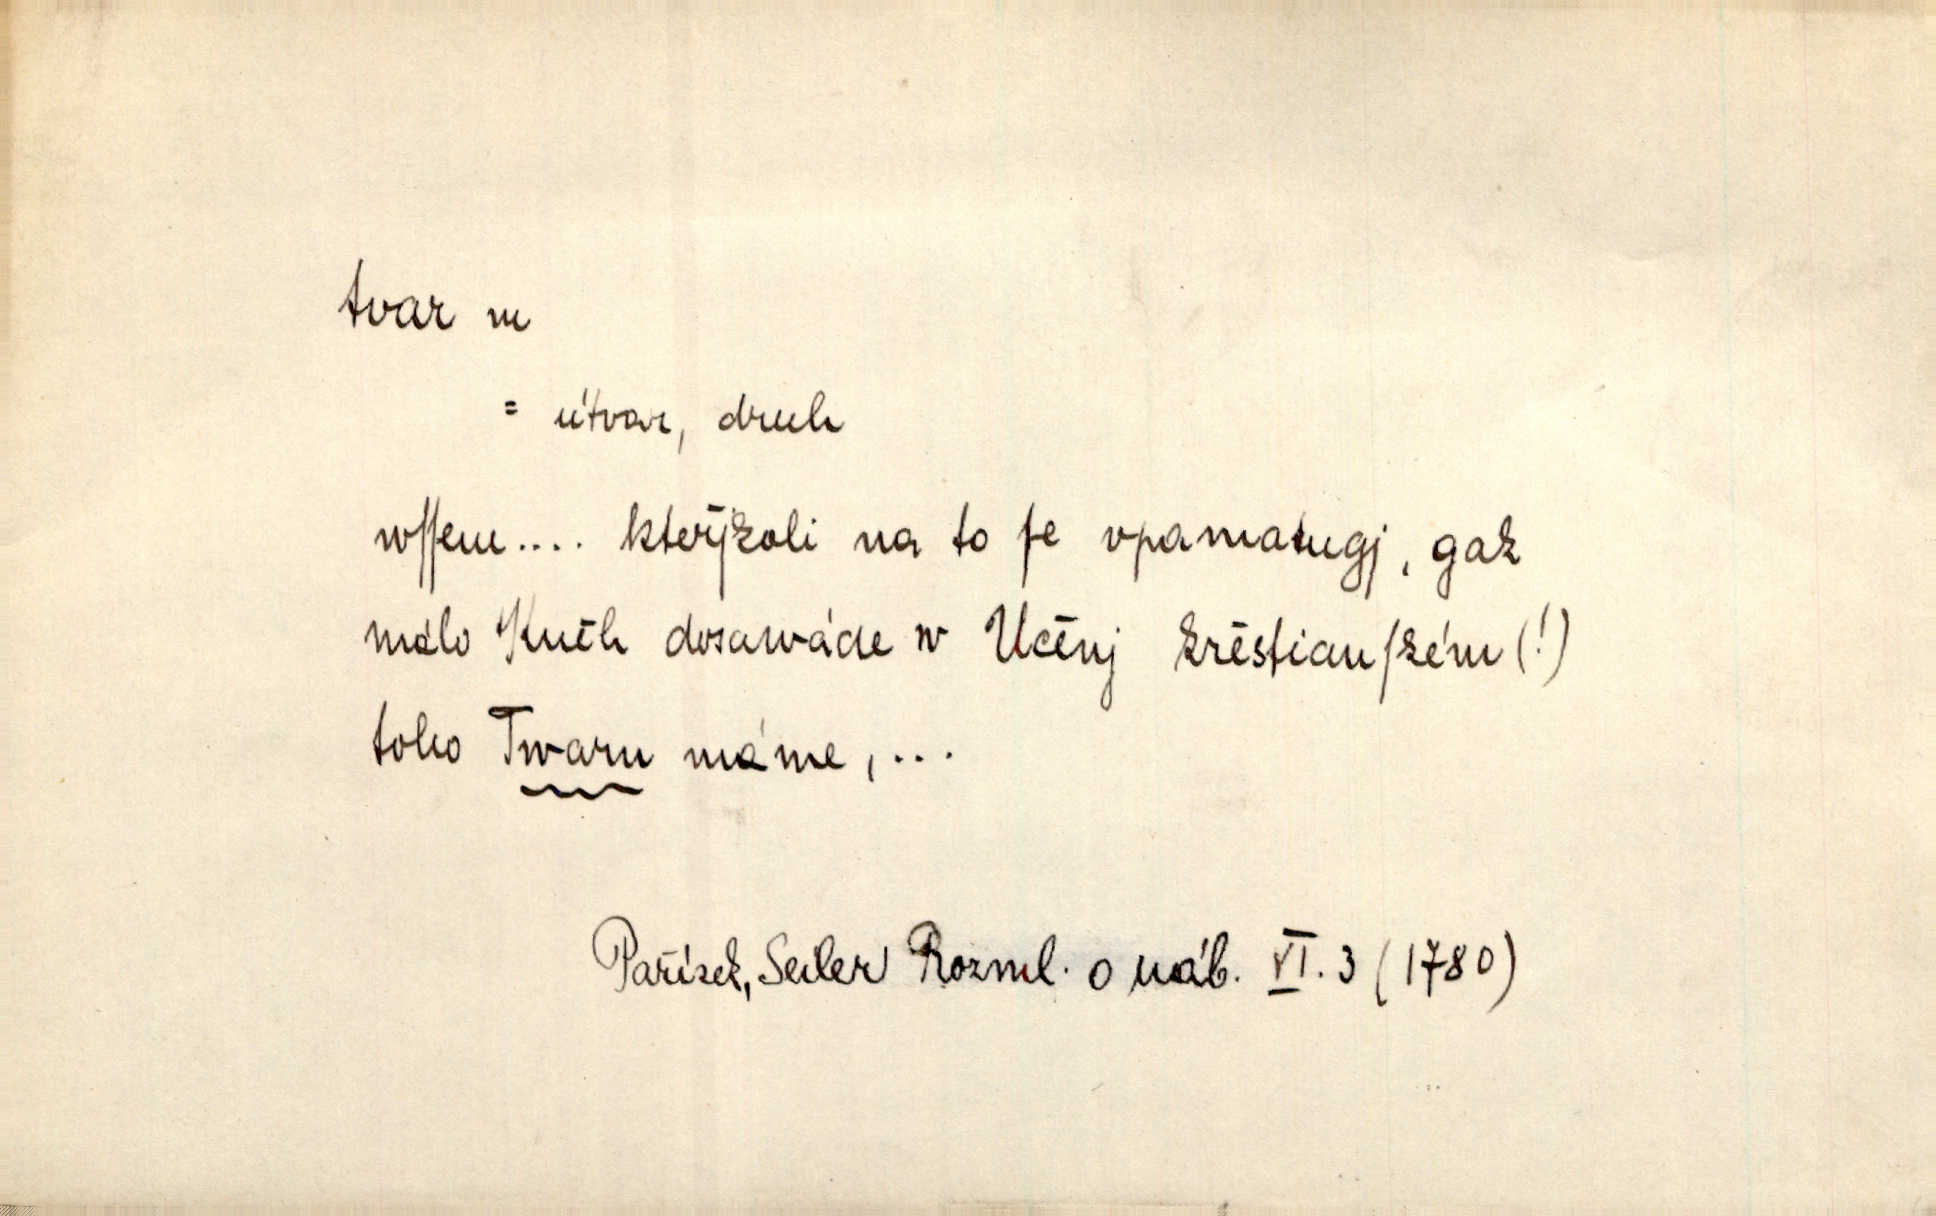 tvar m
= útvar, druh
wſſem.... kterýkoli na to ſe vpamatugj, gak
málo Kněh dosawáde w Učenj křestianſkém (!)
toho Twaru máme, ...
Pařízek, Seiler Rozml. o náb. VI. 3 (1780)